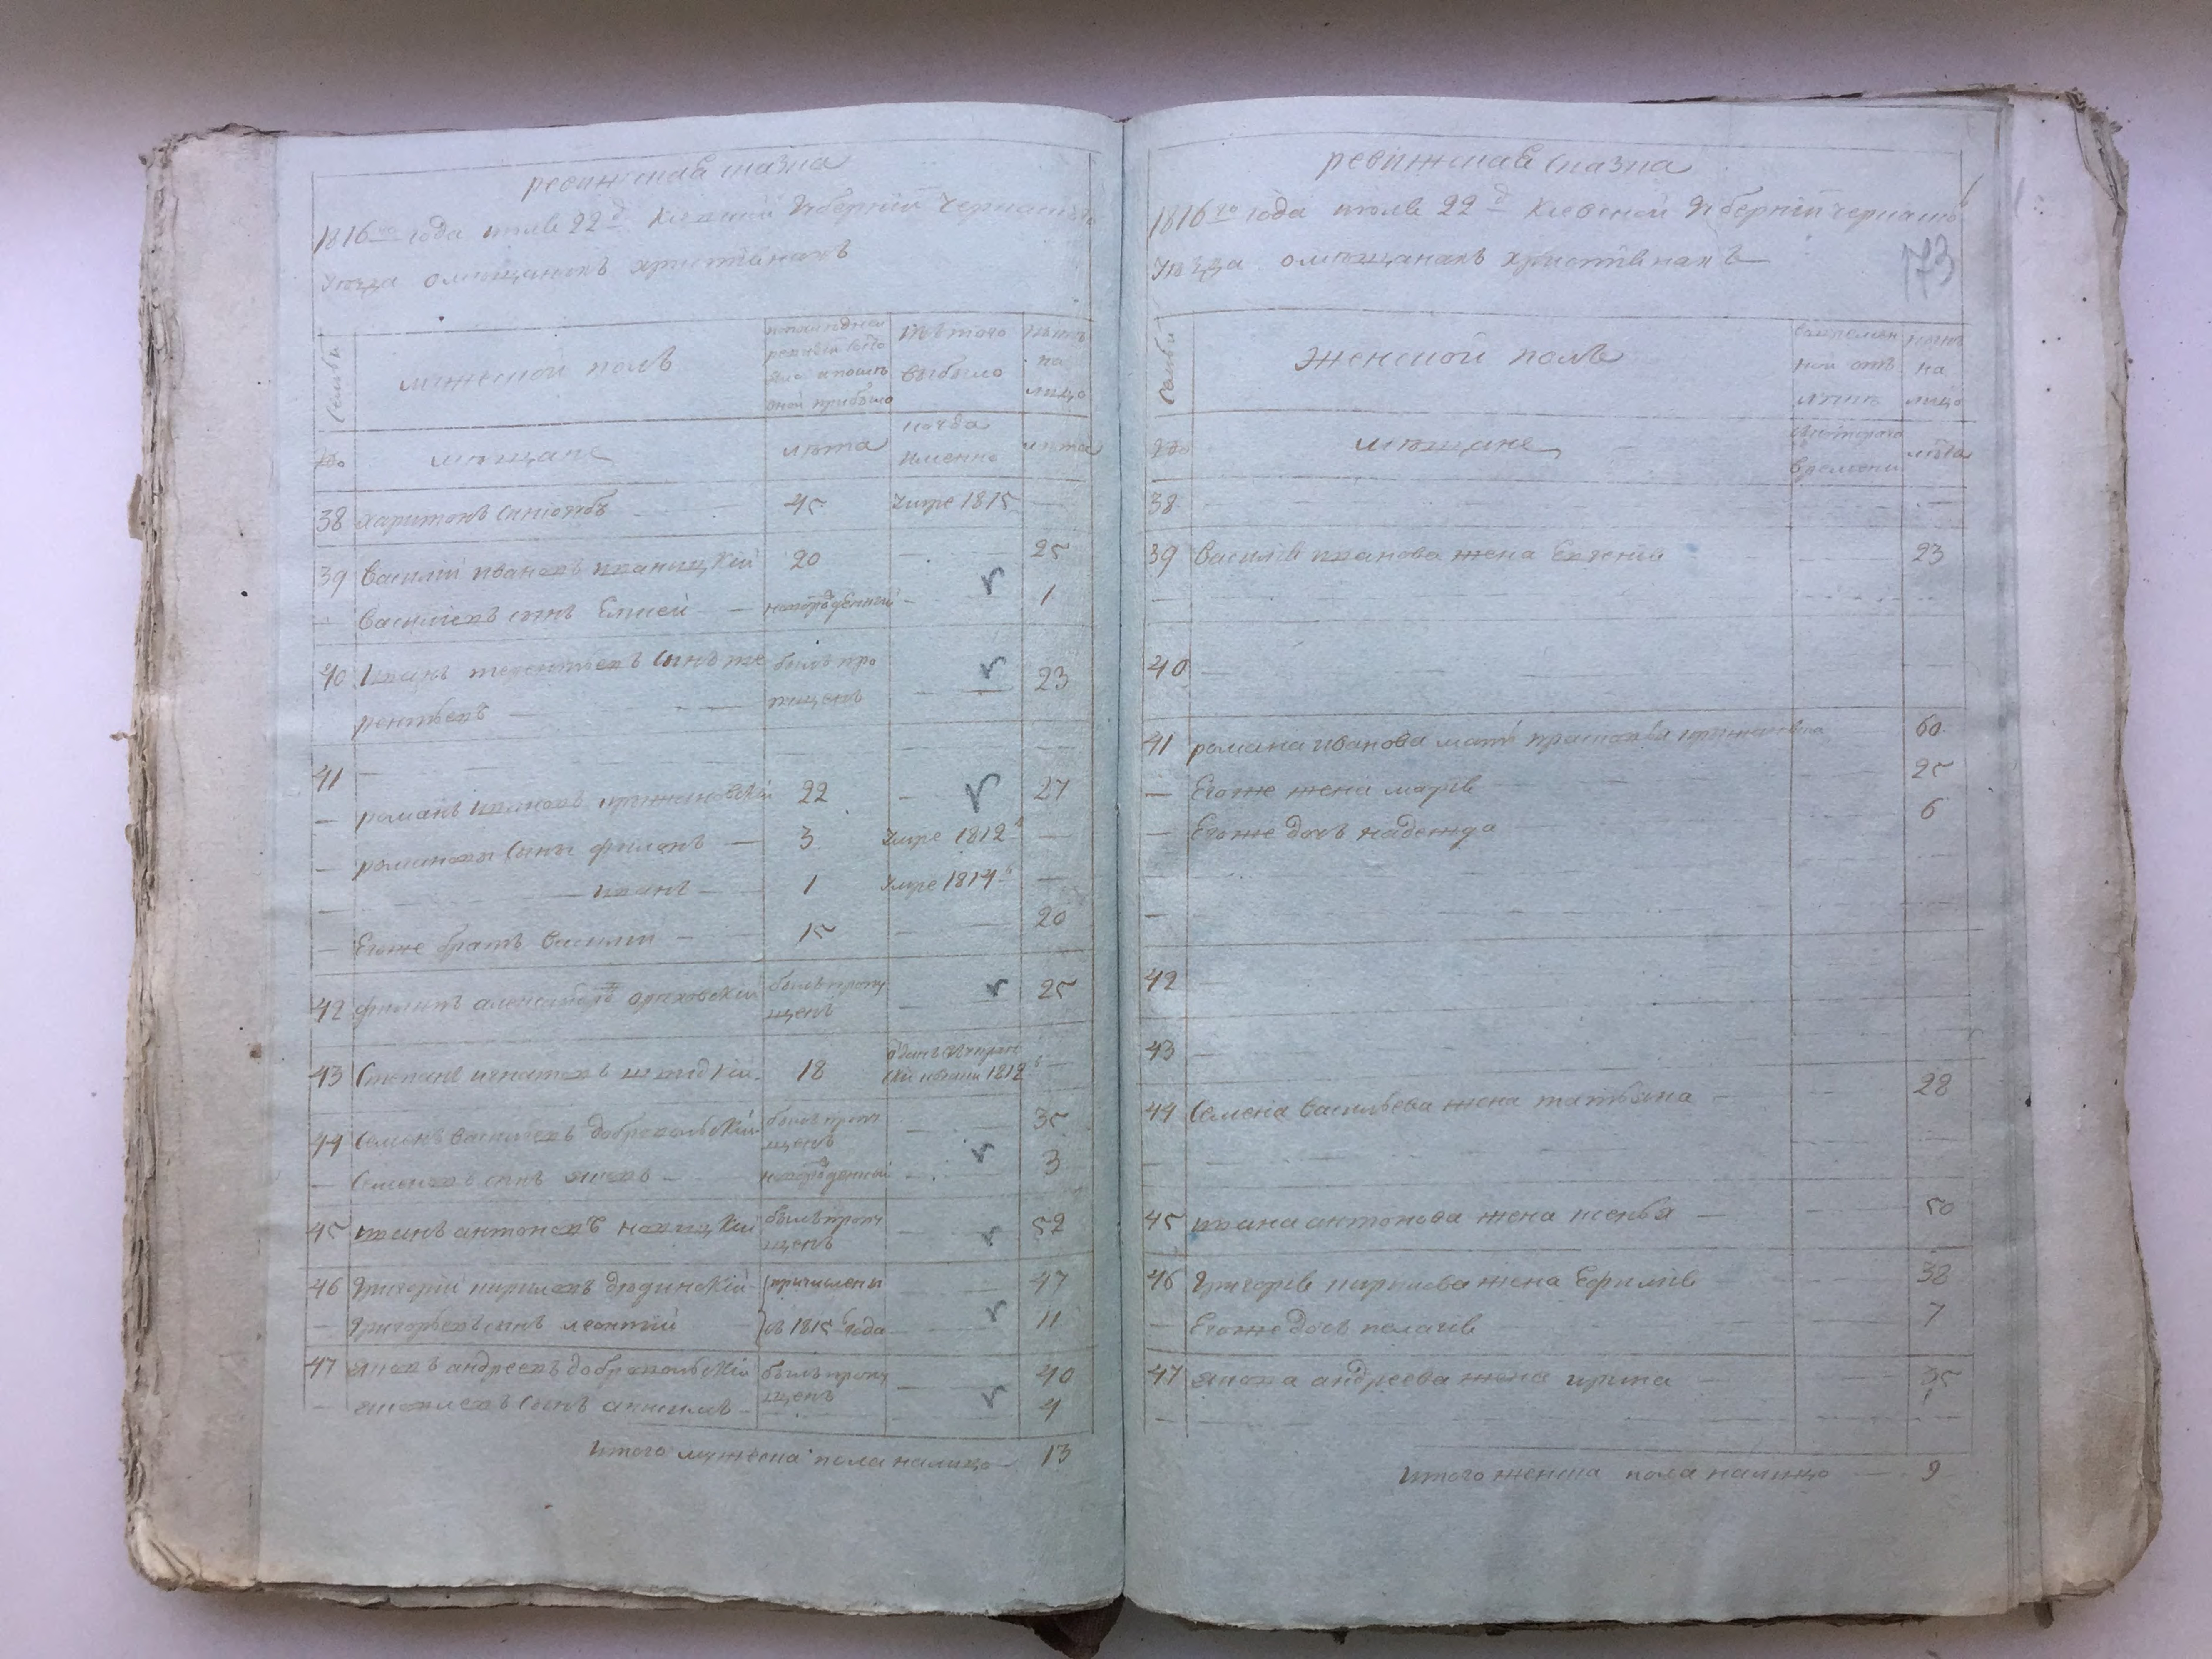 ревижская сказка
1816го года июля 22д Киевской Губернии Черкаскаго
уезда о мещанахъ христианахъ
Семьи
мужеской полъ
по последней
ревизии состо
яло и после
оной прибыло
Изъ того
выбыло
ныне
на
лицо
№
мещане
лета
когда
именно
лета
38 Харитонъ 45 Умре 1815 —
39 Василий Ивановъ Иваницкий 20 — 25
— Васильевъ сынъ Елисей — новорожденный — 1
40 Иванъ Терентьевъ сынъ Те былъ про — 23
рентьевъ — пущенъ
41 —
— Романъ Ивановъ 22 — 27
— Романовы сыны Филонъ — 3 Умре 1812 —
— Иванъ — 1 Умре 1814 —
— Егоже братъ Василий — 15 — 20
42 Филипъ Александровъ Ореховский былъ пропу — 25
щенъ
43 Степанъ Игнатовъ 18 1812 —
44 Семенъ Васильевъ Добровольский былъ пропу — 35
щенъ
— Семеновъ сынъ Яковъ — новорожденный — 3
45 Иванъ Антоновъ Новицкий былъ пропу — 52
щенъ
46 Григорий Кириловъ Дюдинский причислены — 47
— Григорьевъ сынъ Леонтий съ 1815 года — 11
47 Яковъ Андреевъ Добровольский былъ пропу — 40
щенъ
— Яковлевъ сынъ — 4
Итого мужеска пола налицо — 13
ревижская сказка
1816го года июля 22д Киевской Губернии Черкаскаго
уезда о мещанахъ христианахъ —
173
Семьи
Женской полъ
во времен
ной отъ
лучке
ныне
на
лицо
№
мещане
с котораго
времени
лета
38 —
39 Василия Иванова жена Евгения — 23
40 —
41 Романа Иванова мать 60
— Егоже жена Мария 25
— Егоже дочь Надежда 6
42 —
43 —
44 Семена Васильева жена Татьяна — 28
45 Ивана Антонова жена — 50
46 Григория Кирилова жена Ефимия 38
— Егоже дочь Пелагия 7
47 Якова Андреева жена Ирина 35
Итого женска пола налицо — 9